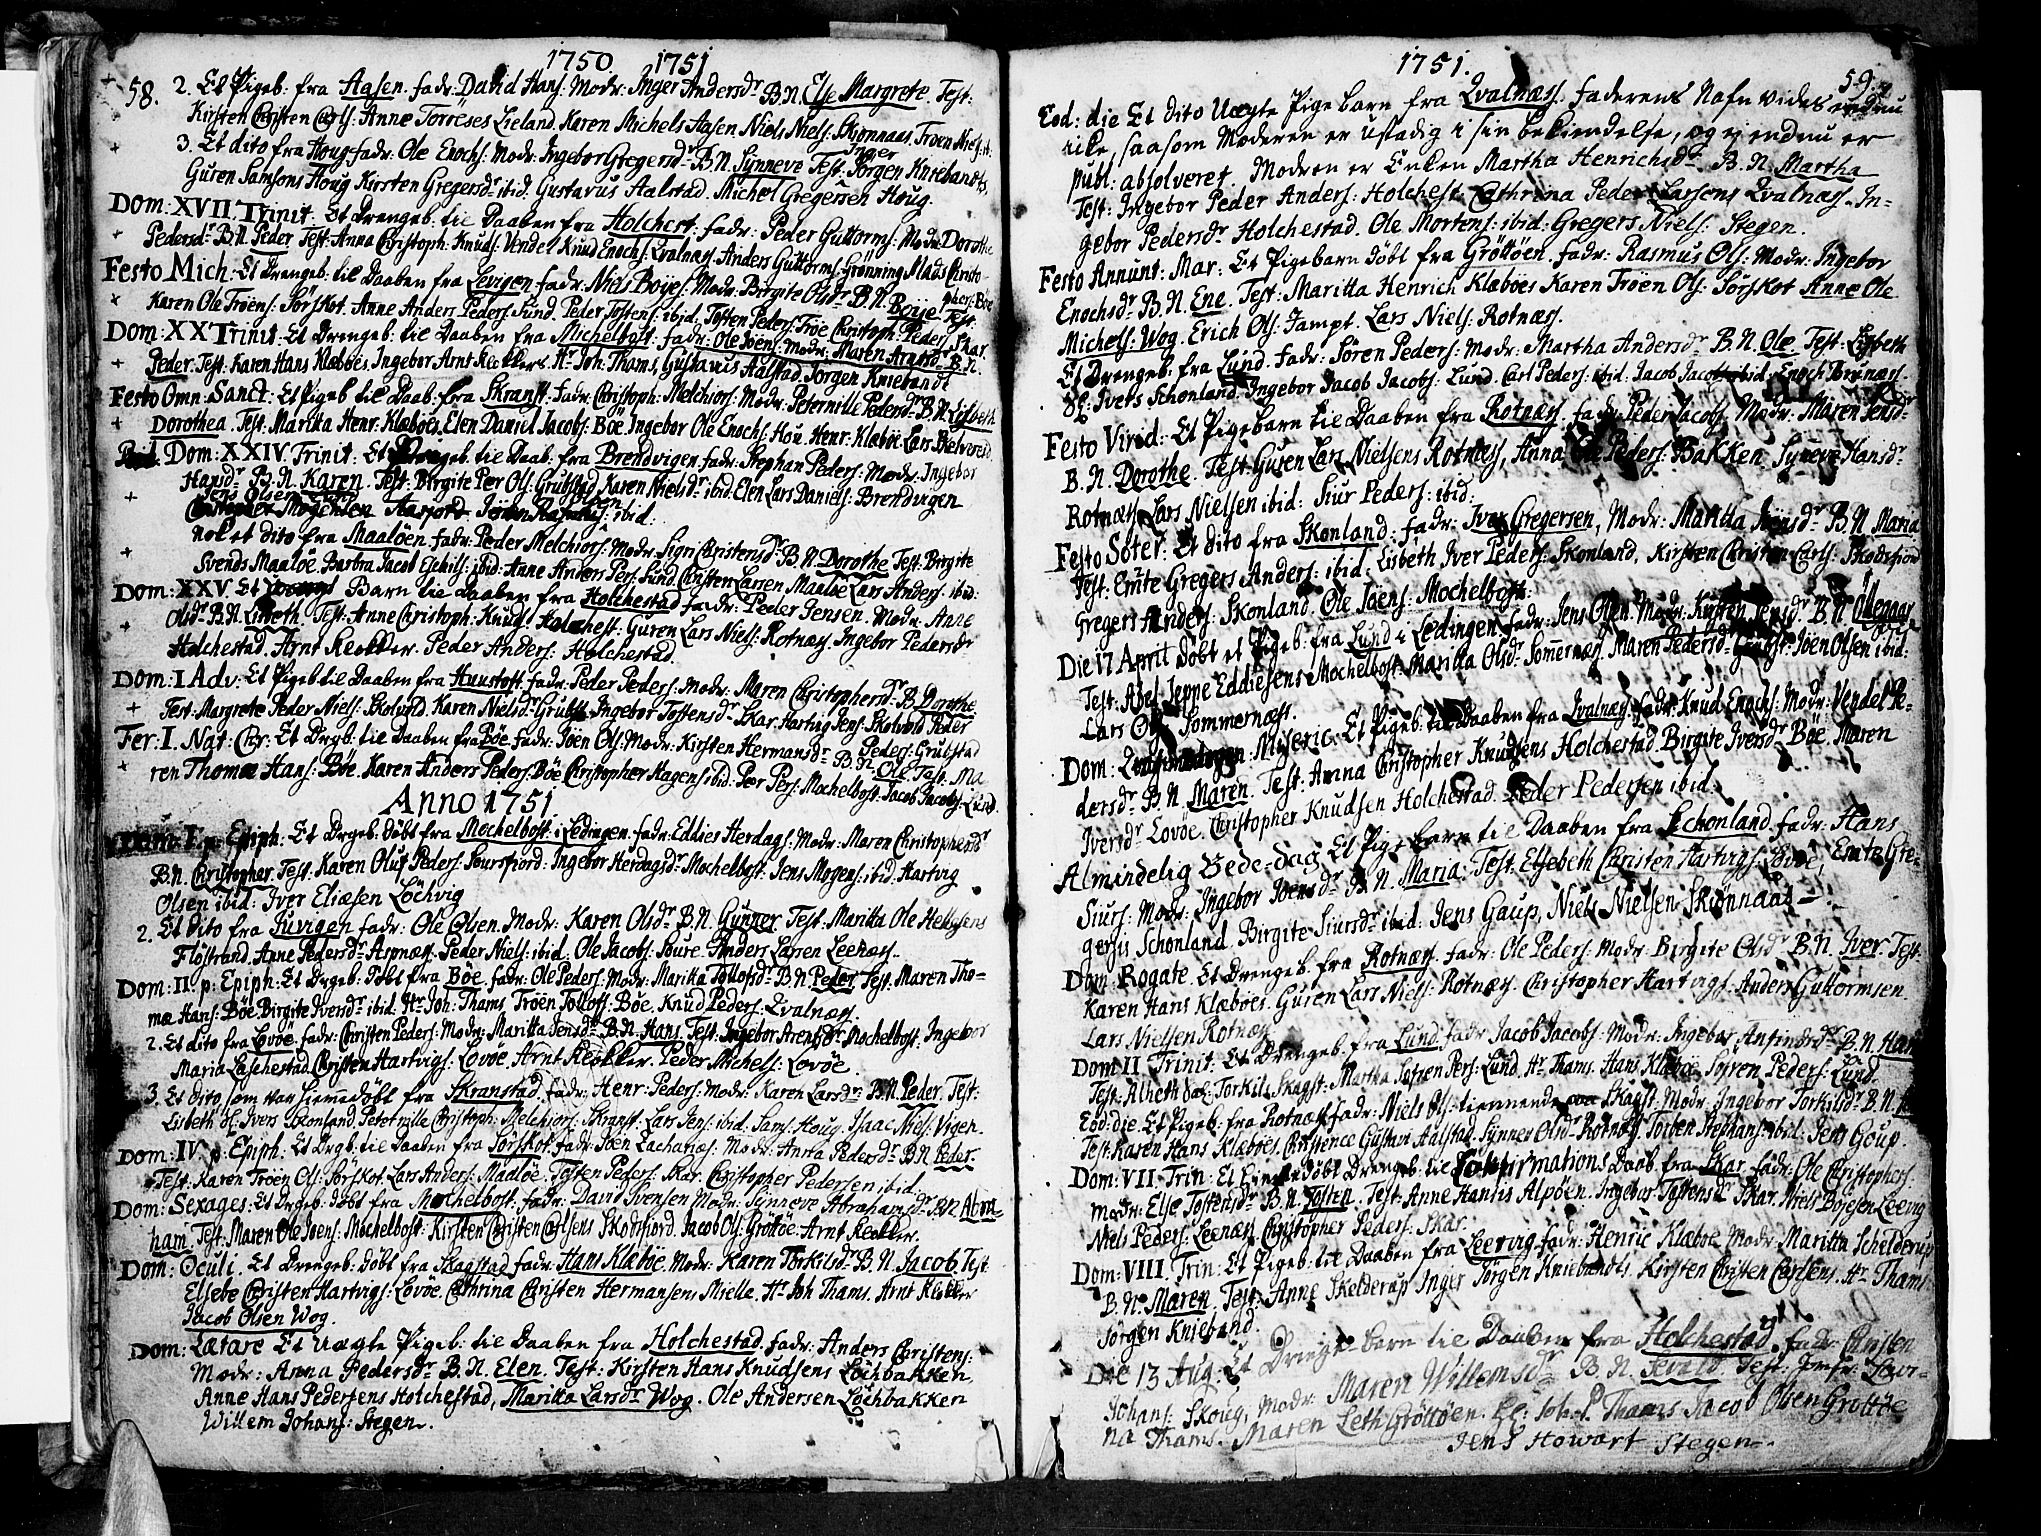 1750 1751
58. 2. Et Pigeb: fra Aasen. fadr: David Hans: Modr: Inger Andersdr B.N. Else Margrete. Test:
Kirsten Christen Carls: Anne Torröses Lieland. Karen Michels Aasen Niels Niels: Skionnaas. Troen Niels:
3. Et dito fra Houg. fadr: Ole Enochs: Modr: Ingebor Gregersdr B.N. Synneve Test: Inger Jörgen Kniebandts,
Guren Samsons Houg Kirsten Gregersdr ibid. Gustavus Aalstad. Michel Gregersen Houg.
Dom: XVII. Trinit. Et Drengeb. til Daaben fra Holchest. fadr: Peder Guttorms: Modr: Dorothe
Pedersdr B.N. Peder Test: Anna Christoph: Knuds: Vendel Knud Enochs: Evalnæs. Anders Guttorms: Grönning Mads Christo-
Festo Mich: Et Drengeb: til Daaben fra Levigen fadr: Niels Böyes: Modr: Birgite Olsdr B.N. Böye Test:
phers: Böe
Karen Ole Troens: Sörskot. Anne Anders Peders: Sund. Peder Tostens: ibid. Tosten Peders: Tröe Christoph: Peders: Skar.
Dom: XX Trinit. Et Drengeb: til Daaben fra Michelbost. fadr: Ole Joens: Modr: Maren Arntsdr B.N.
Peder. Test: Karen Hans Klæböes, Ingebor Arnt Klokkers Hr Joh: Thams, Gustavus Aalstad. Jorgen Kniebandt
Festo Omn: Sanct: Et Pigeb til Daab. fra Skranst. fadr: Christoph: Melchiors: Modr: Peternille Pedersdr B.N. Lisbeth
Dorothea. Test. Maritta Henr: Klæböes, Elen Daniel Jacobs: Böe Ingebor Ole Enochs: Hou. Henr: Klæböe Lars Bielverss
Dom: XXIV Trinit: Et Pigeb til Daab. fra Brendvigen fadr: Stephan Peders: Modr: Ingebor
Hansdr B.N. Karen. Test: Birgite Per Ols: Grubstad Karen Nielsdr ibid. Elen Lars Daniels: Brendvigen
Jens Olsen
ibid:
Nok et dito fra Maalöen fadr: Peder Melchiors: Modr: Sigri Christensdr B.N. Dorothe Test: Birgite
Svends Maalöe, Barbra Jacob Eskils: ibid: Anne Anders Pers: Sund Christen Larsen Maalöe Lars Anders: ibid:
Dom: XXV. Et Barn til Daaben fra Holchestad fadr: Peder Jensen. Modr: Anne
Olsdr B.N. Lisbeth. Test: Anne Christoph: Knuds: Holchest: Guren Lars Niels: Rotnæs Ingebor Pedersdr
Holchestad. Arnt Klokker. Peder Anders: Holchestad.
Dom: I Adv: Et Pigeb til Daaben fra Hunstost. fadr: Peder Peders: Modr: Maren Christophersdr B. Dorothe
Test: Margrete Peder Niels: Skolvold. Karen Nielsdr Grubst. Ingebor Tostensdr Skar. Hartvig Jens: Skolvold Peder
Peders: Grubstad
Fer: I. Nat: Chr: Et Drgb: til Daaben fra Böe. fadr: Joen Ols: Modr: Kirsten Hermansdr B.N. Ole Test. Ma
ren Thomæ Hans: Böe. Karen Anders Peders: Böe Christopher Hagens ibid: Per Pers: Mochelbost. Jacob Jacobs: Lund.
Anno 1751
Dom: I p: Epiph: Et Drgeb. döbt fra Mochelbost i Lödingen. fadr: Eddies Herdags: Modr: Maren Christophersdr
B.N. Christopher. Test: Karen Oluf Peders: Soursfiord: Ingebor Herdagsdr Mochelbost. Jens Mogens: ibid. Hartvig
Olsen ibid: Iver Eliæsen Löchvig
2. Et dito fra Juvigen fadr: Ole Olsen. Modr: Karen Olsdr B.N. Gunner Test: Maritta Ole Hellesens
Flöstrand, Anne Pedersdr Aspnæs. Peder Niels: ibid. Ole Jacobs: Soure. Anders Larsen Leenæs.
Dom: II p: Epiph: Et Drgeb. döbt fra Böe. fadr: Ole Peders: Modr: Maritta Tollofsdr B.N. Peder Test. Maren Tho-
mæ Hans: Böe Birgite Iversdr ibid. Hr Joh: Thams, Troen Tollofs: Böe, Knud Peders: Evalnæs.
2. Et dito fra Lovöe. fadr: Christen Peders: Modr: Maritta Jensdr B.N. Hans. Test: Ingebor Arensdr Mochelbost. Ingebor
Maria Laschestad Christen Hartvigs: Lovöe Arnt Klokker. Peder Michels: Lovöe.
3. Et dito som var hiemedöbt fra Skranstad. fadr: Henr: Peders: Modr: Karen Larsdr B.N. Peder. Test:
Lisbeth Sl: Ivers Schonland Peternille Christoph: Melchiors: Skranst: Lars Jens: ibid. Sams: Houg. Isaac Niels: Vigen.
Dom: IV. p: Epiph: Et Drgb. til Daaben fra Sörskot. fadr: Joen Zachariæs: Modr: Anna Pedersdr B.N. Peder.
Test: Karen Troen Ols: Sörskot. Lars Anders: Maalöe. Tosten Peders: Skar. Christopher Pedersen ibid.
Dom: Sexages: Et Drgeb. döbt fra Mochelbost. fadr: David Ivensen Modr: Synneve Abrahamsdr B.N. Abra-
ham. Test: Maren Ole Joens: Mochelbost: Kirsten Christen Carlsens Skotsfiord. Jacob Ols: Gröttöe. Arnt Klokker.
Dom: Oculi. Et Drengeb: döbt fra Skagstad fadr: Hans Klæböe. Modr: Karen Torkilsdr B.N. Jacob, Test:
Elsebe Christen Hartvigs: Lovöe. Cathrina Christen Hermansens Mielle. Hr Joh Thams. Arnt Klokker
Jacob Olsen Wog.
Dom: Lætare Et Uægte Pigeb: til Daaben fra Holchestad. fadr: Anders Christens:
Modr: Anna Pedersdr B.N. Elen. Test: Kirsten Hans Knudsens Löchbakken,
Anne Hans Pedersens Holchestad, Maritta Larsdr Wog. Ole Andersen Löchbakken
Willem Johans: Stegen.
1751.
59.
Eod: die Et dito Uægte Pige barn fra Evalnæs. faderens Nafn vides endnu
icke, saasom Moderen er Ustadig i sin bekiendelse, og ej endnu er
publ: absolveret. Modren er Enken Martha Henrichsdr B.N. Martha
Test: Ingebor Peder Anders: Holchest Cathrina Peder Larsens Evalnæs. In-
gebor Pedersdr Holchestad. Ole Mortens: ibid: Gregers Niels: Stegen.
Festo Annunt: Mar: Et Pigebarn döbt fra Gröttöen. fadr: Rasmus Ols: Modr: Ingebor
Enochsdr B.N. Ene. Test: Maritta Henrich Klæböes Karen Tröen Ols: Sörskot Anne Ole
Michels: Wog. Erich Ols: Jampt. Lars Niels: Rotnæs.
Et Drengeb. fra Lund. fadr: Sören Peders: Modr: Martha Andersdr B.N. Ole. Test: Lisbeth
Sl: Ivers Schonland. Ingebor Jacob Jacobs: Lund. Carl Peders: ibid. Jacob Jacobs: ibid: Enoch
Festo Virid: Et Pigebarn til Daaben fra Rotnæs. fadr: Peder Jacobs: Modr: Maren Jensdr
B.N. Dorothe. Test: Guren Lars Nielsens Rotnæs, Anna Ole Peders: Bakken Syneve Hansdr
Rotnæs, Lars Nielsen ibid: Siur Peders: ibid:
Festo Soter: Et dito fra Skonland: fadr: Iver Gregersen, Modr: Maritta Joensdr B.N. Maria
Test: Emte Gregers Anders: ibid: Lisbeth Iver Peders: Skonland, Kirsten Christen Carls: Skotsfiord
Gregers Anders: Skonland. Ole Joens: Mochelbost.
Die 17 April döbt et Pigeb: fra Lund i Lödingen fadr: Jens Olsen Modr: Kirsten Jensdr B.N. Ödegaar
Test: Abel Jeppe Eddiesens Mochelbost. Maritta Olsdr Somernæs. Maren Pedersdr Joen Olsen ibid:
Lars Ols: Sommernæs.
Dom: Miseric: Et Pigeb: til Daaben fra Evalnæs fadr: Knud Enochs: Modr: Vendel Pe-
dersdr B.N. Maren. Test: Anna Christopher Knudsens Holchestad. Birgite Iversdr Böe. Maren
Iversdr Lovöe. Christopher Knudsen Holchestad. Peder Pedersen ibid.
Almindelig Bede-dag Et Pige barn til Daaben fra Schonland. fadr: Hans
Siurs: Modr: Ingebor Joensdr B.N. Maria. Test: Elsebeth Christen Hartvigs: Lovöe, Emte Gre-
gersis Schonland. Birgite Siursdr ibid. Jens Gaup, Niels Nielsen Skiönnaas
Dom: Rogate. Et Drengeb. fra Rotnæs. fadr: Ole Peders: Modr: Birgite Olsdr B.N. Iver Test:
Karen Hans Klæböes. Guren Lars Niels: Rotnæs. Christopher Hartvigs: Anders Guttormsen
Lars Nielsen Rotnæs.
Dom II Trinit: Et Drengeb. fra Lund. fadr Jacob Jacobs: Modr: Ingebor Anfindsdr B.N. Hans
Test: Alheth Torkils Skagst: Martha Sofren Pers: Lund. Hr Thams. Hans Klæböe. Sofren Peders: Lund.
Eod: die. Et Pigeb. fra Rotnæs. fadr: Niels Ols: tiennende Skagst. Modr: Ingebor Torkilsdr B.N.
Test: Karen Hans Klæböes, Christence Gustavi Aalstad. Synner Olsdr Rotnæs Torben Stephans: ibid: Jens Goup.
Dom: VII. Trin: Et hiemedöbt Drengeb: til Confirmations Daab fra Skar. fadr: Ole Christophers:
Modr: Else Tostensdr B.N. Tosten. Test: Anne Hannis Alpöen. Ingebor Tostensdr Skar. Niels Böjesen Leevig
Niels Peders: Leenæs. Christopher Peders: Skar.
Dom: VIII. Trin: Et Pigeb: til Daaben fra Leervig. fadr: Henric Klæboe Modr Maritta Schelderup
B.N: Maren. Test: Anne Skelderup Inger Jörgen Kniebandts Kirsten Christen Carlsens. Hr Thams
Jörgen Knieband.
Die 13 Aug: Et Drenge barn til Daaben fra Holchestad. fadr. Christen
Johans: Skoug, Modr: Maren Willemsdr B.N. Sevald Test: Jomfr: Lovi-
na Thams. Maren Leth Gröttöen. Hr: Joh. P. Thams Jacob Olsen Gröttöe
Jens Howart Stegen.